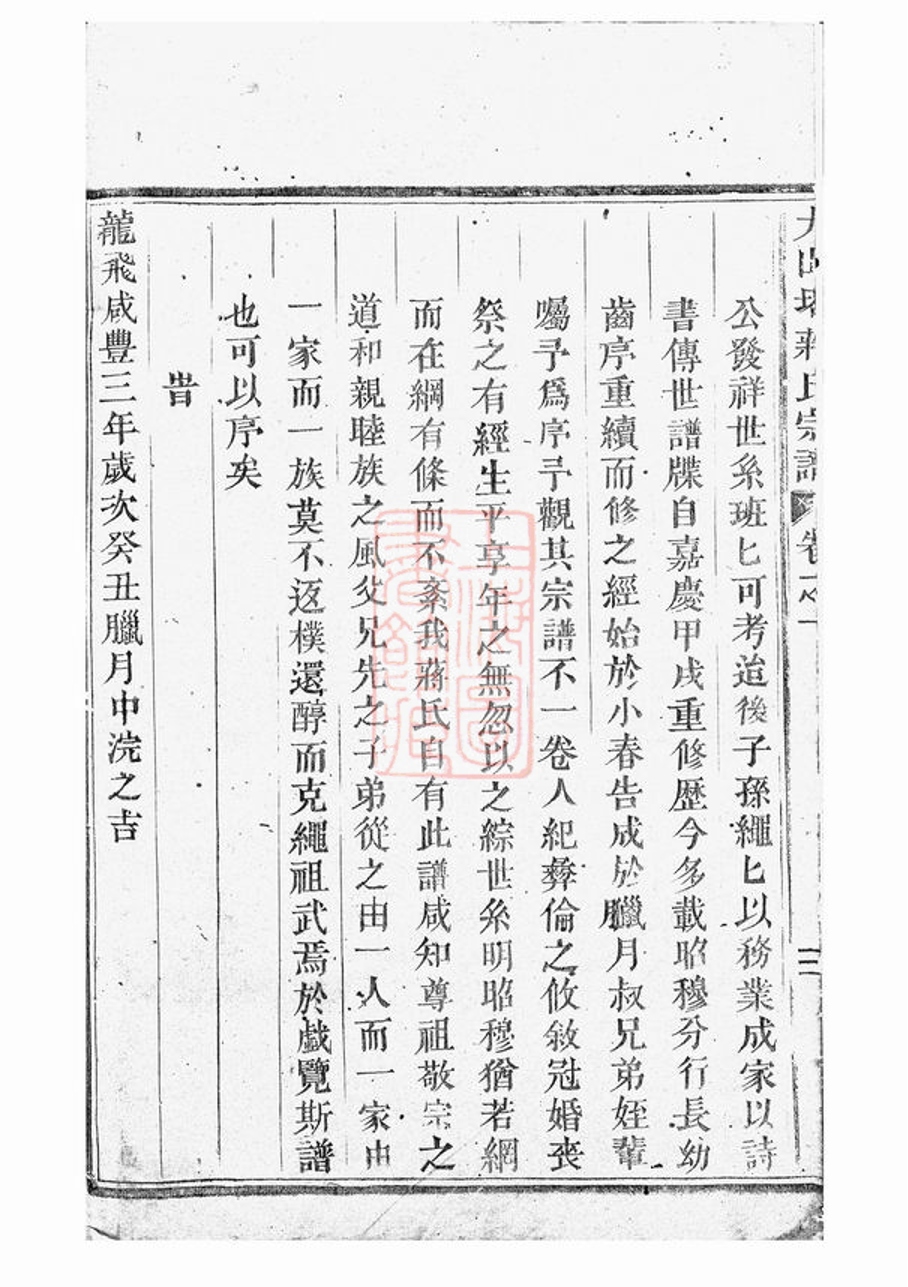 蔣氏宗譜 卷之一
公發祥世系班匕可考迨後子孫繩匕以務業成家以詩
書傳世譜牒自嘉慶甲戌重修歷今多載昭穆分行長幼
齒序重續而修之經始於小春告成於臘月叔兄弟姪輩
囑予爲序予觀其宗譜不一卷人紀彝倫之攸敘冠婚喪
祭之有經生平享年之無忽以之綜世系明昭穆猶若網
而在綱有條而不紊我蔣氏自有此譜咸知尊祖敬宗之
道和親睦族之風父兄先之子弟從之由一人而一家由
一家而一族莫不返樸還醇而克繩祖武焉於戲覽斯譜
也可以序矣
旹
龍飛咸豐三年歲次癸丑臘月中浣之吉